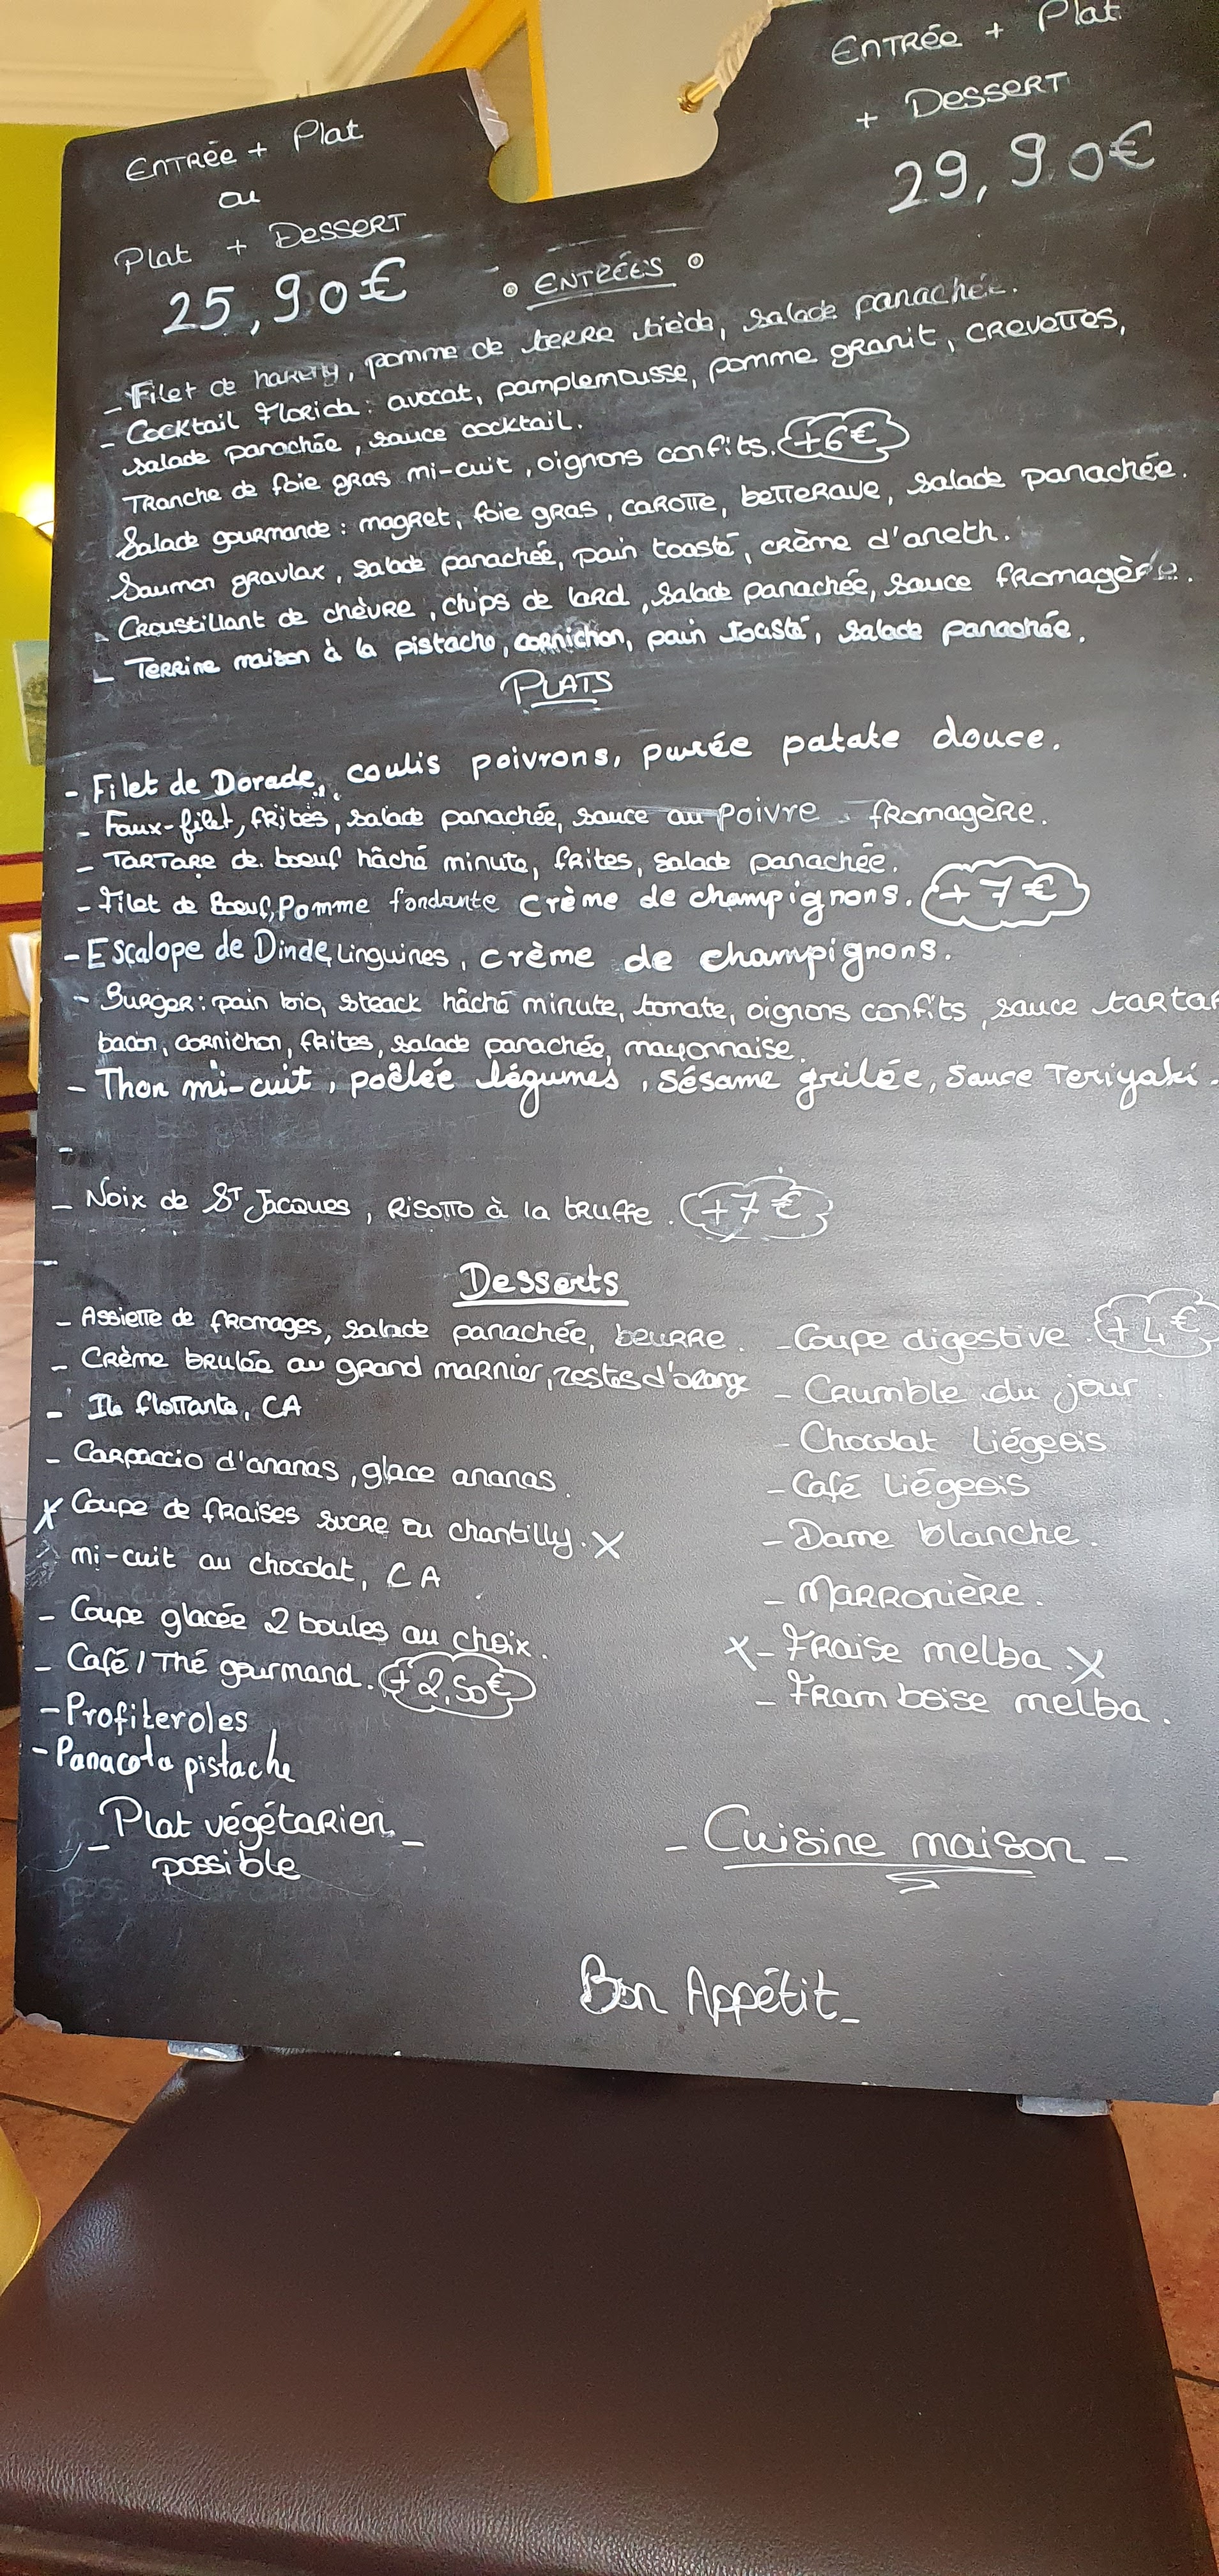 Entrée + Plat
ou
Plat + Dessert
25,90€
Entrée + Plat
+ Dessert
29,90€
Entrées
- Filet de hareng, pomme de terre tiède, salade panachée.
- Cocktail Florida : avocat, pamplemousse, pomme granit, crevettes,
salade panachée, sauce cocktail.
Tranche de foie gras mi-cuit, oignons confits. +6€
Salade gourmande : magret, foie gras, carotte, betterave, salade panachée.
Saumon gravlax, salade panachée, pain toasté, crème d'aneth.
- Croustillant de chèvre, chips de lard, salade panachée, sauce fromagère.
- Terrine maison à la pistache, cornichon, pain toasté, salade panachée.
Plats
- Filet de Dorade, coulis poivrons, purée patate douce.
- Faux-filet, frites, salade panachée, sauce au poivre fromagère.
- Tartare de boeuf hâché minute, frites, salade panachée.
- Filet de Boeuf, Pomme fondante crème de champignons. +7€
- Escalope de Dinde, linguines, crème de champignons.
- Burger : pain bio, steack hâché minute, tomate, oignons confits, sauce tartar
bacon, cornichon, frites, salade panachée, mayonnaise.
- Thon mi-cuit, poêlée légumes, sésame grillée, sauce Teriyaki.
-
- Noix de St Jacques, risotto à la truffe. +7€
-
Desserts
- Assiette de fromages, salade panachée, beurre.
- Crème brulée au grand marnier, zestes d'orang
- Ile flottante, CA
- Carpaccio d'ananas, glace ananas.
X Coupe de fraises sucre ou chantilly. X
mi-cuit au chocolat, CA
- Coupe glacée 2 boules au choix.
- Café / Thé gourmand. +2,50€
- Profiteroles
- Panacota pistache
- Coupe digestive. +4€
- Crumble du jour.
- Chocolat Liégeois
- Café Liégeois
- Dame blanche.
- Marronière.
X - Fraise melba. X
- Framboise melba.
- Plat végétarien -
possible
- Cuisine maison -
Bon Appétit -